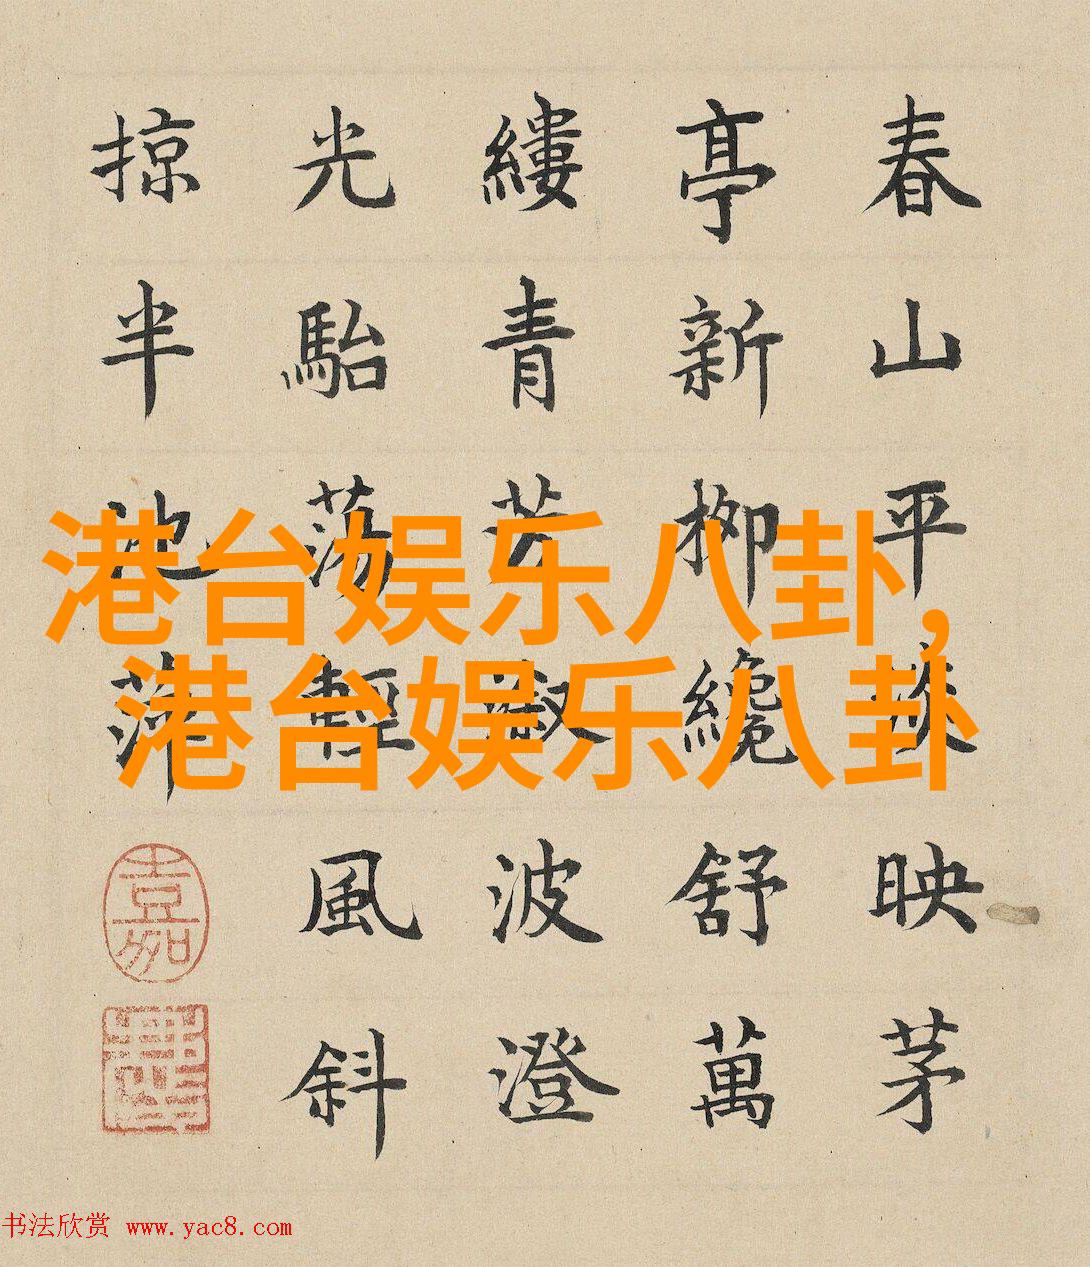 春山平映茅
亭新柳纔舒萬
縷青芳波澄
光駘蕩輕風斜
掠半池萍
嘉
港台娱乐八卦,
港台娱乐八卦
书法欣赏 www.yac8.com